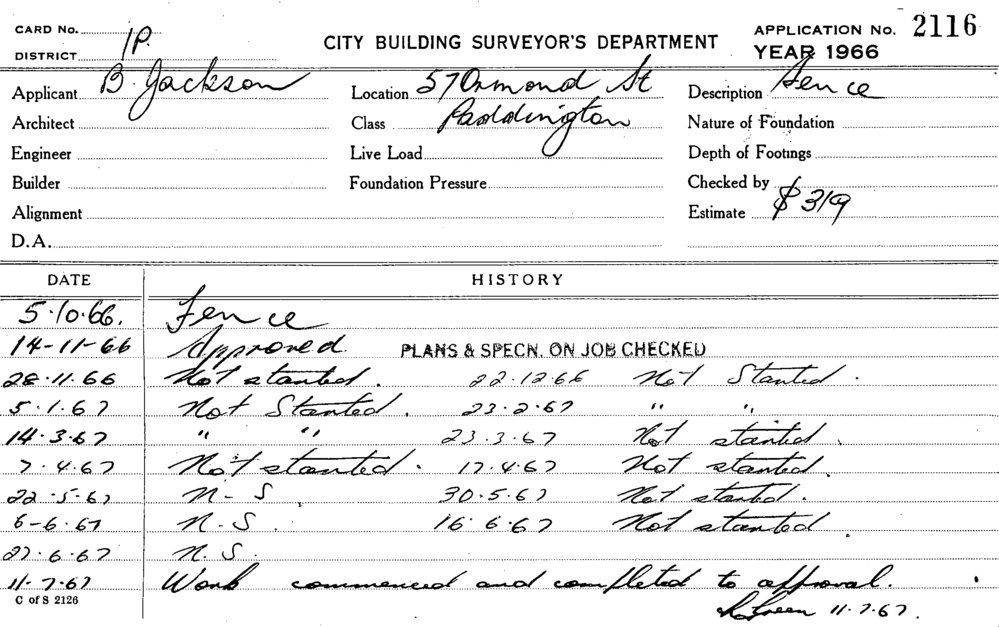 CARD No. 1P. CITY BUILDING SURVEYOR'S DEPARTMENT APPLICATION No. 2116
DISTRICT YEAR 1966
Applicant B. Jackson Location 57 Ormond St Description Fence
Architect Class Paddington Nature of Foundation
Engineer Live Load Depth of Footings
Builder Foundation Pressure Checked by
Alignment Estimate $319
D.A.
DATE HISTORY
5.10.66. Fence
14-11-66 Approved. PLANS & SPECN. ON JOB CHECKED
28.11.66 Not started. 22.12.66 Not Started.
5.1.67 Not Started. 23.2.67 " "
14.3.67 " " 23.3.67 Not started.
7.4.67 Not started. 17.4.67 Not started.
22.5.67 N-S 30.5.67 Not started.
6-6.67 N.S. 16.6.67 Not started
27.6.67 N.S.
11-7.67 Work commenced and completed to approval.
C of S 2126 Green 11.7.67.